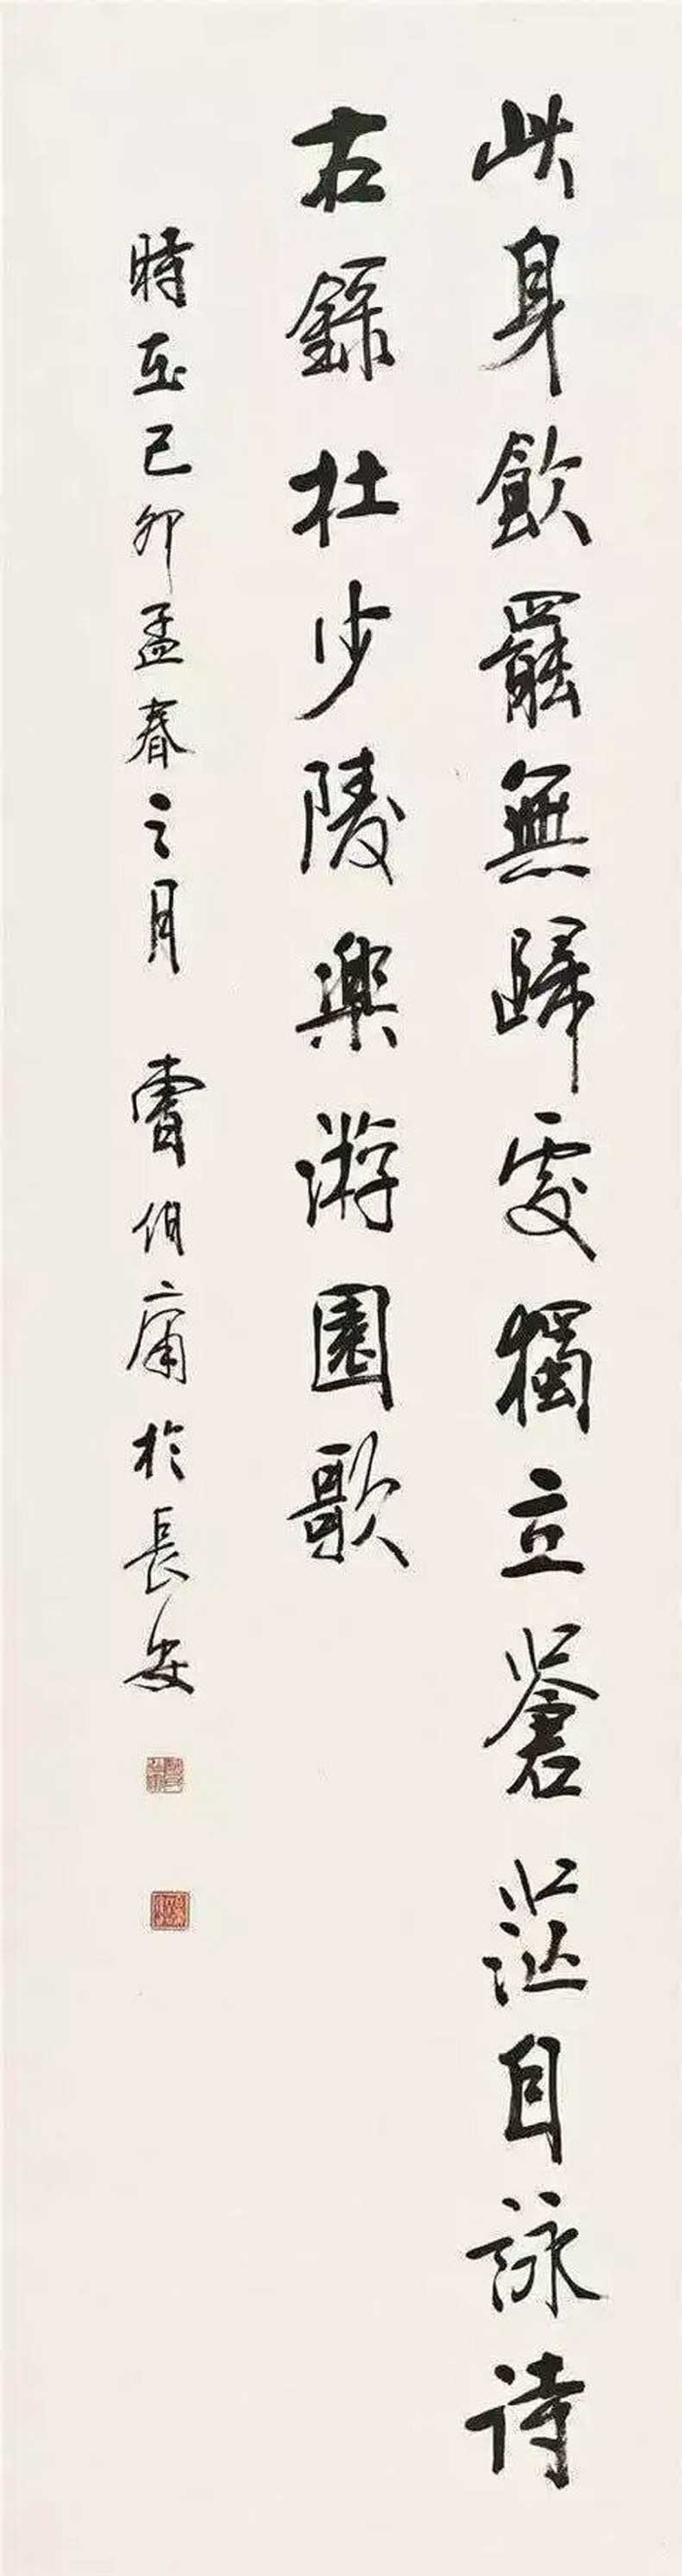 此身飲罷無歸處獨立蒼茫自詠詩
右錄杜少陵樂游園歌
時在己卯孟春之月 曹伯庸於長安